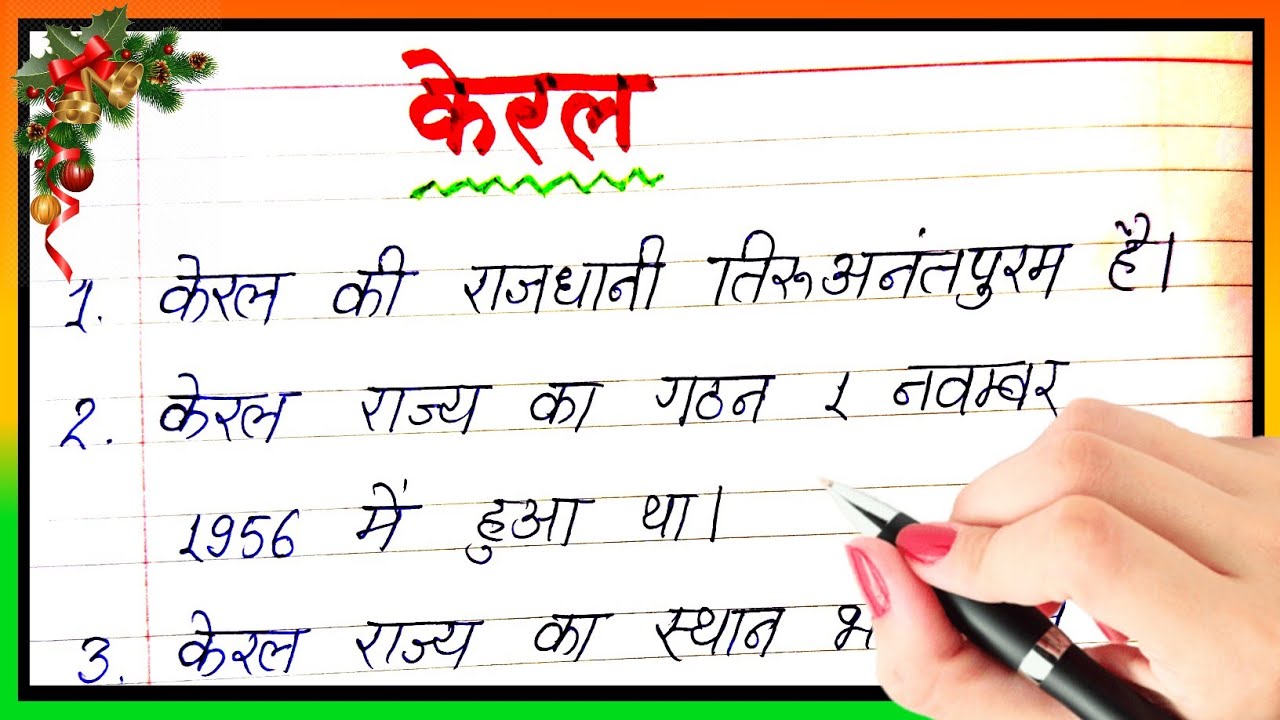 केरल
1. केरल की राजधानी तिरुअनंतपुरम है।
2. केरल राज्य का गठन 1 नवम्बर
1956 में हुआ था।
3. केरल राज्य का स्थान